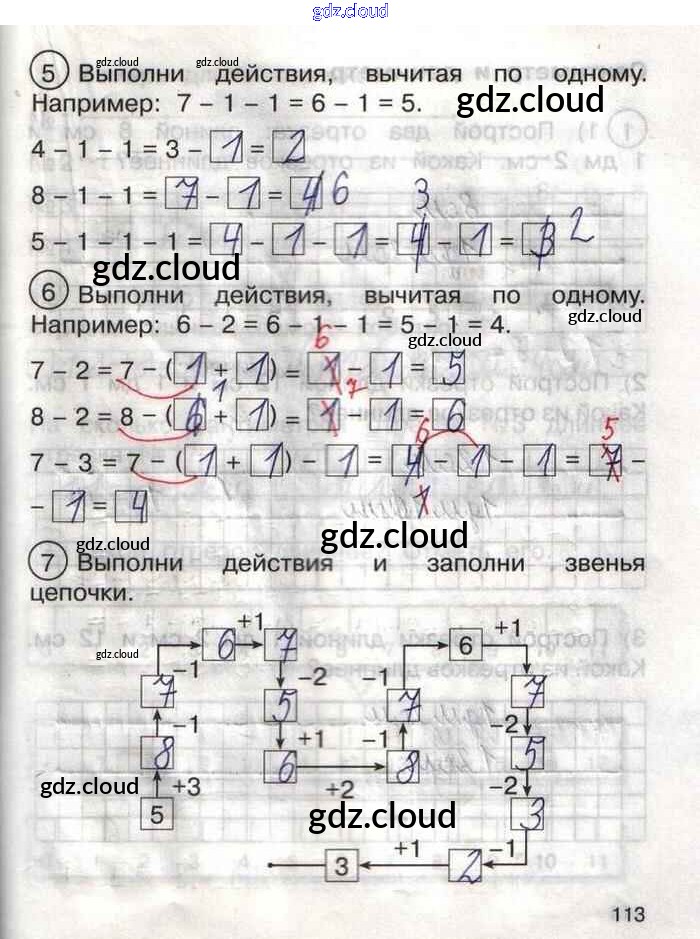 gdz.cloud
gdz.cloud gdz.cloud
5 Выполни действия, вычитая по одному.
Например: 7 – 1 – 1 = 6 – 1 = 5. gdz.cloud
4 – 1 – 1 = 3 – 1 = 2
8 – 1 – 1 = 7 – 1 = 4 6 3
5 – 1 – 1 – 1 = 4 – 1 – 1 = 4 – 1 = 3 2
gdz.cloud gdz.cloud
6 Выполни действия, вычитая по одному.
Например: 6 – 2 = 6 – 1 – 1 = 5 – 1 = 4. gdz.cloud
6 gdz.cloud
7 – 2 = 7 – (1 + 1) = 1 – 1 = 5
1 7
8 – 2 = 8 – (6 + 1) = 1 – 1 = 6
6 5
7 – 3 = 7 – (1 + 1) – 1 = 4 – 1 – 1 = 7 –
– 1 = 4 1
gdz.cloud gdz.cloud gdz.cloud
7 Выполни действия и заполни звенья
цепочки.
+1 +1
gdz.cloud 6 7 6
–1 –2 –1
7 5 7 7
–1 +1 –1 –2
8 6 8 5
gdz.cloud +3 +2 –2 gdz.cloud
5 gdz.cloud 3
+1 –1
3 2
113
gdz.cloud